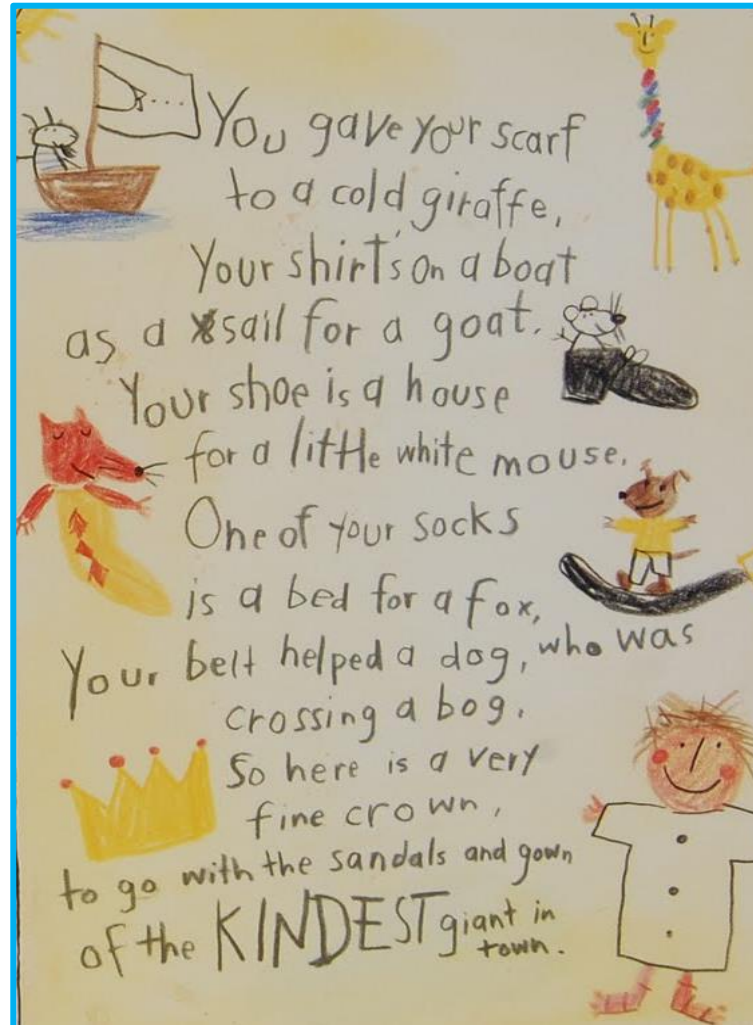 You gave your scarf
to a cold giraffe,
Your shirt's on a boat
as a sail for a goat.
Your shoe is a house
for a little white mouse.
One of your socks
is a bed for a fox,
Your belt helped a dog, who was
crossing a bog.
So here is a very
fine crown,
to go with the sandals and gown
of the KINDEST giant in
town.